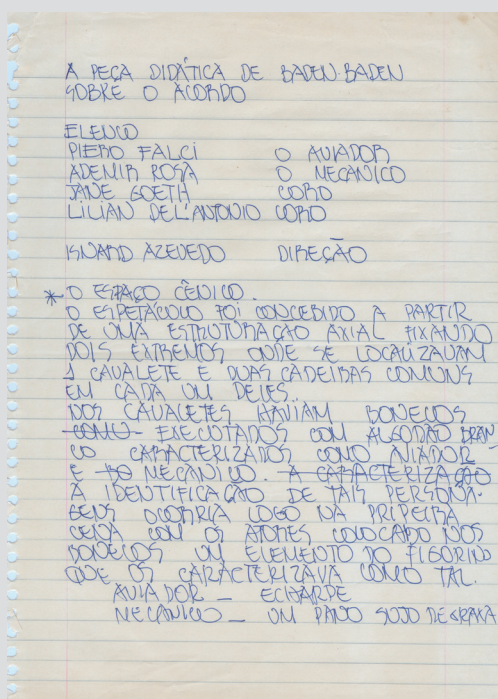 A PEÇA DIDÁTICA DE BADEN-BADEN
SOBRE O ACORDO
ELENCO
PIERO FALCI O AVIADOR
ADEMIR ROSA O MECANICO
JANE GOETH CORO
LILIAN DEL'ANTONIO CORO
ISNARD AZEVEDO DIREÇÃO
* O ESPAÇO CÊNICO.
O ESPETÁCULO FOI CONCEBIDO A PARTIR
DE UMA ESTRUTURAÇÃO AXIAL FIXANDO
DOIS EXTREMOS ONDE SE LOCALIZAVAM
1 CAVALETE E DUAS CADEIRAS COMUNS
EM CADA UM DELES.
NOS CAVALETES HAVIAM BONECOS
COMO EXECUTADOS COM ALGODÃO BRAN-
CO CARACTERIZADOS COMO AVIADOR
E DO MECÂNICO. A CARACTERIZAÇÃO
A IDENTIFICAÇÃO DE TAIS PERSONA-
GENS OCORRIA LOGO NA PRIMEIRA
CENA COM OS ATORES COLOCADO NOS
BONECOS UM ELEMENTO DO FIGORINO
QUE OS CARACTERIZAVA COMO TAL.
AVIADOR – ECHARPE
MECÂNICO – UM PANO SUJO DE GRAXA